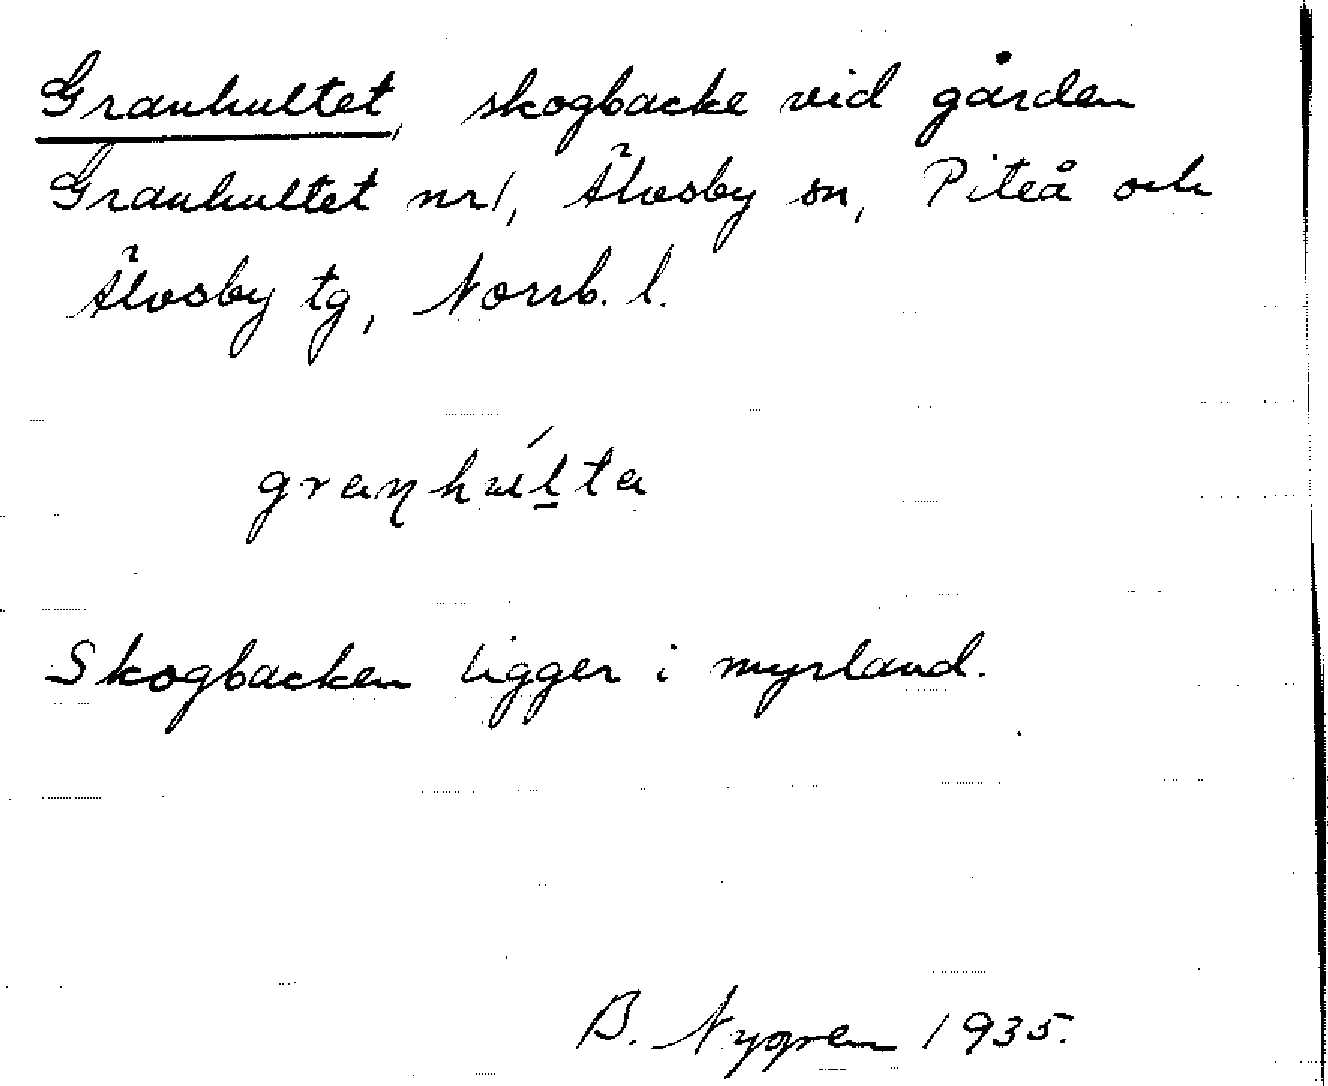 Granhultet, skogbacke vid gården
Granhultet nr 1, Älvsby sn, Piteå och
Älvsby tg, Norrb. l.
Skogbacken ligger i myrland.
B. Nygren 1935.